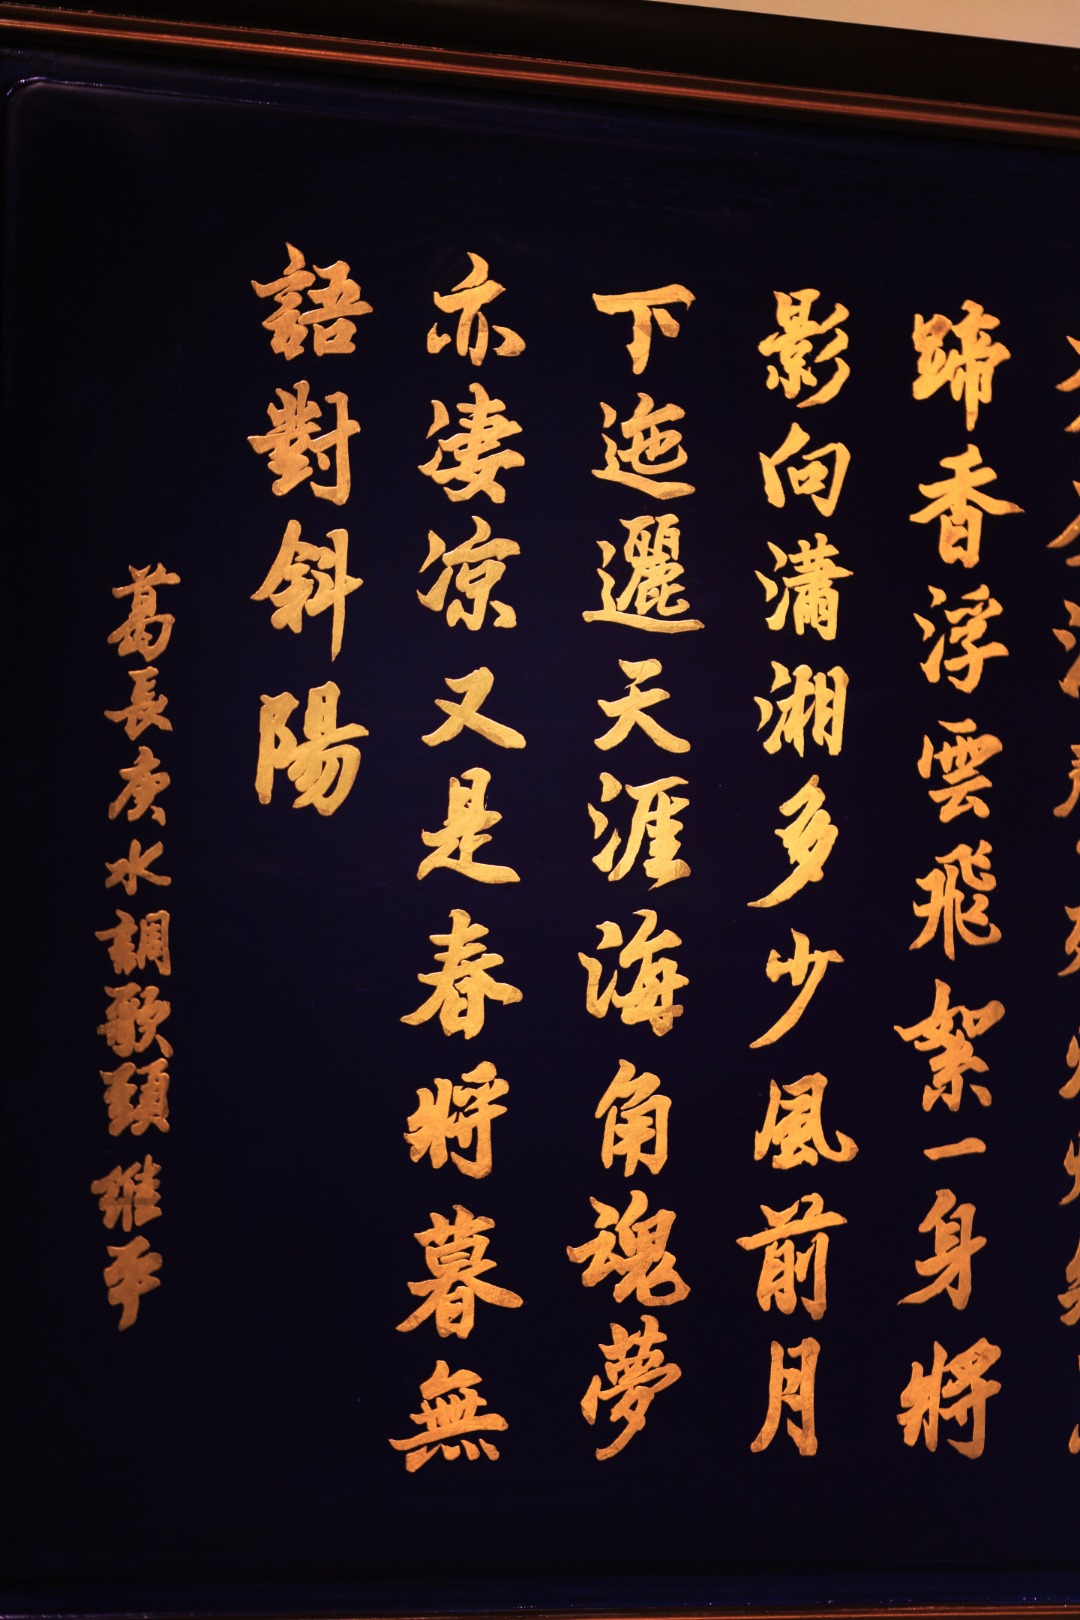 蹄香浮雲飛絮一身將
影向瀟湘多少風前月
下迤邐天涯海角魂夢
亦淒涼又是春將暮無
語對斜陽
葛長庚水調歌頭 維平